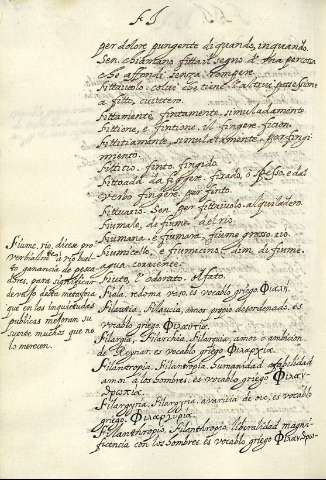 F I
per dolore pungente di quando, inquando.
Sen. chiantano fitta il segno d' una percossa
che affondi senza rompere.
Fittavolo. colui che tiene l'altrui possession
a fitto, casero.
Fittamente, fintamente, simuladamente
Fittione, e fintione. il fingere ficion.
Fittitiamente, simulatamente. por fingi-
miento.
Fittitio. finto fingido.
Fittoada da figgere fixado, ò espesso, e dal
verbo fingere per finto.
Fittuario. Sen. per fittaivolo. alquilador.
Fiumale, di fiume. del rio.
Fiumana. e fiumara. fiume grosso. rio.
Fiumicello, e fiumicino. dim. di fiume.
agua coriente.
Fiuto, l'odorato. olfato.
Fiala, redoma vaso, es vocablo griego Φιαλη.
Filautia, Filaucia, amor proprio desordenado. es
vocablo griego Φιλαυτια.
Filargia, Filarchia, Filarquia, amor o ambición
de Reynar. es vocablo griego Φιλαρχια.
Filantropia, Filantropia, humanidad afabilidad
amor à los hombres. es vocablo griego Φιλαν-
δρωπια.
Filargyria, Filargyria. avaricia de oro, es vocablo
griego. Φιλαργυρια.
Filanthropia, Filanthropia liberalidad magni-
ficencia con los hombres es vocablo griego Φιλανδρω-
Fiume, rio, dicese pro
verbialmte. à rio buel-
to ganancia de pesca
dores, para significar
devaxo desta metafora
que en las inquietudes
publicas mejoran su
suerte muchos que no
lo merecen.